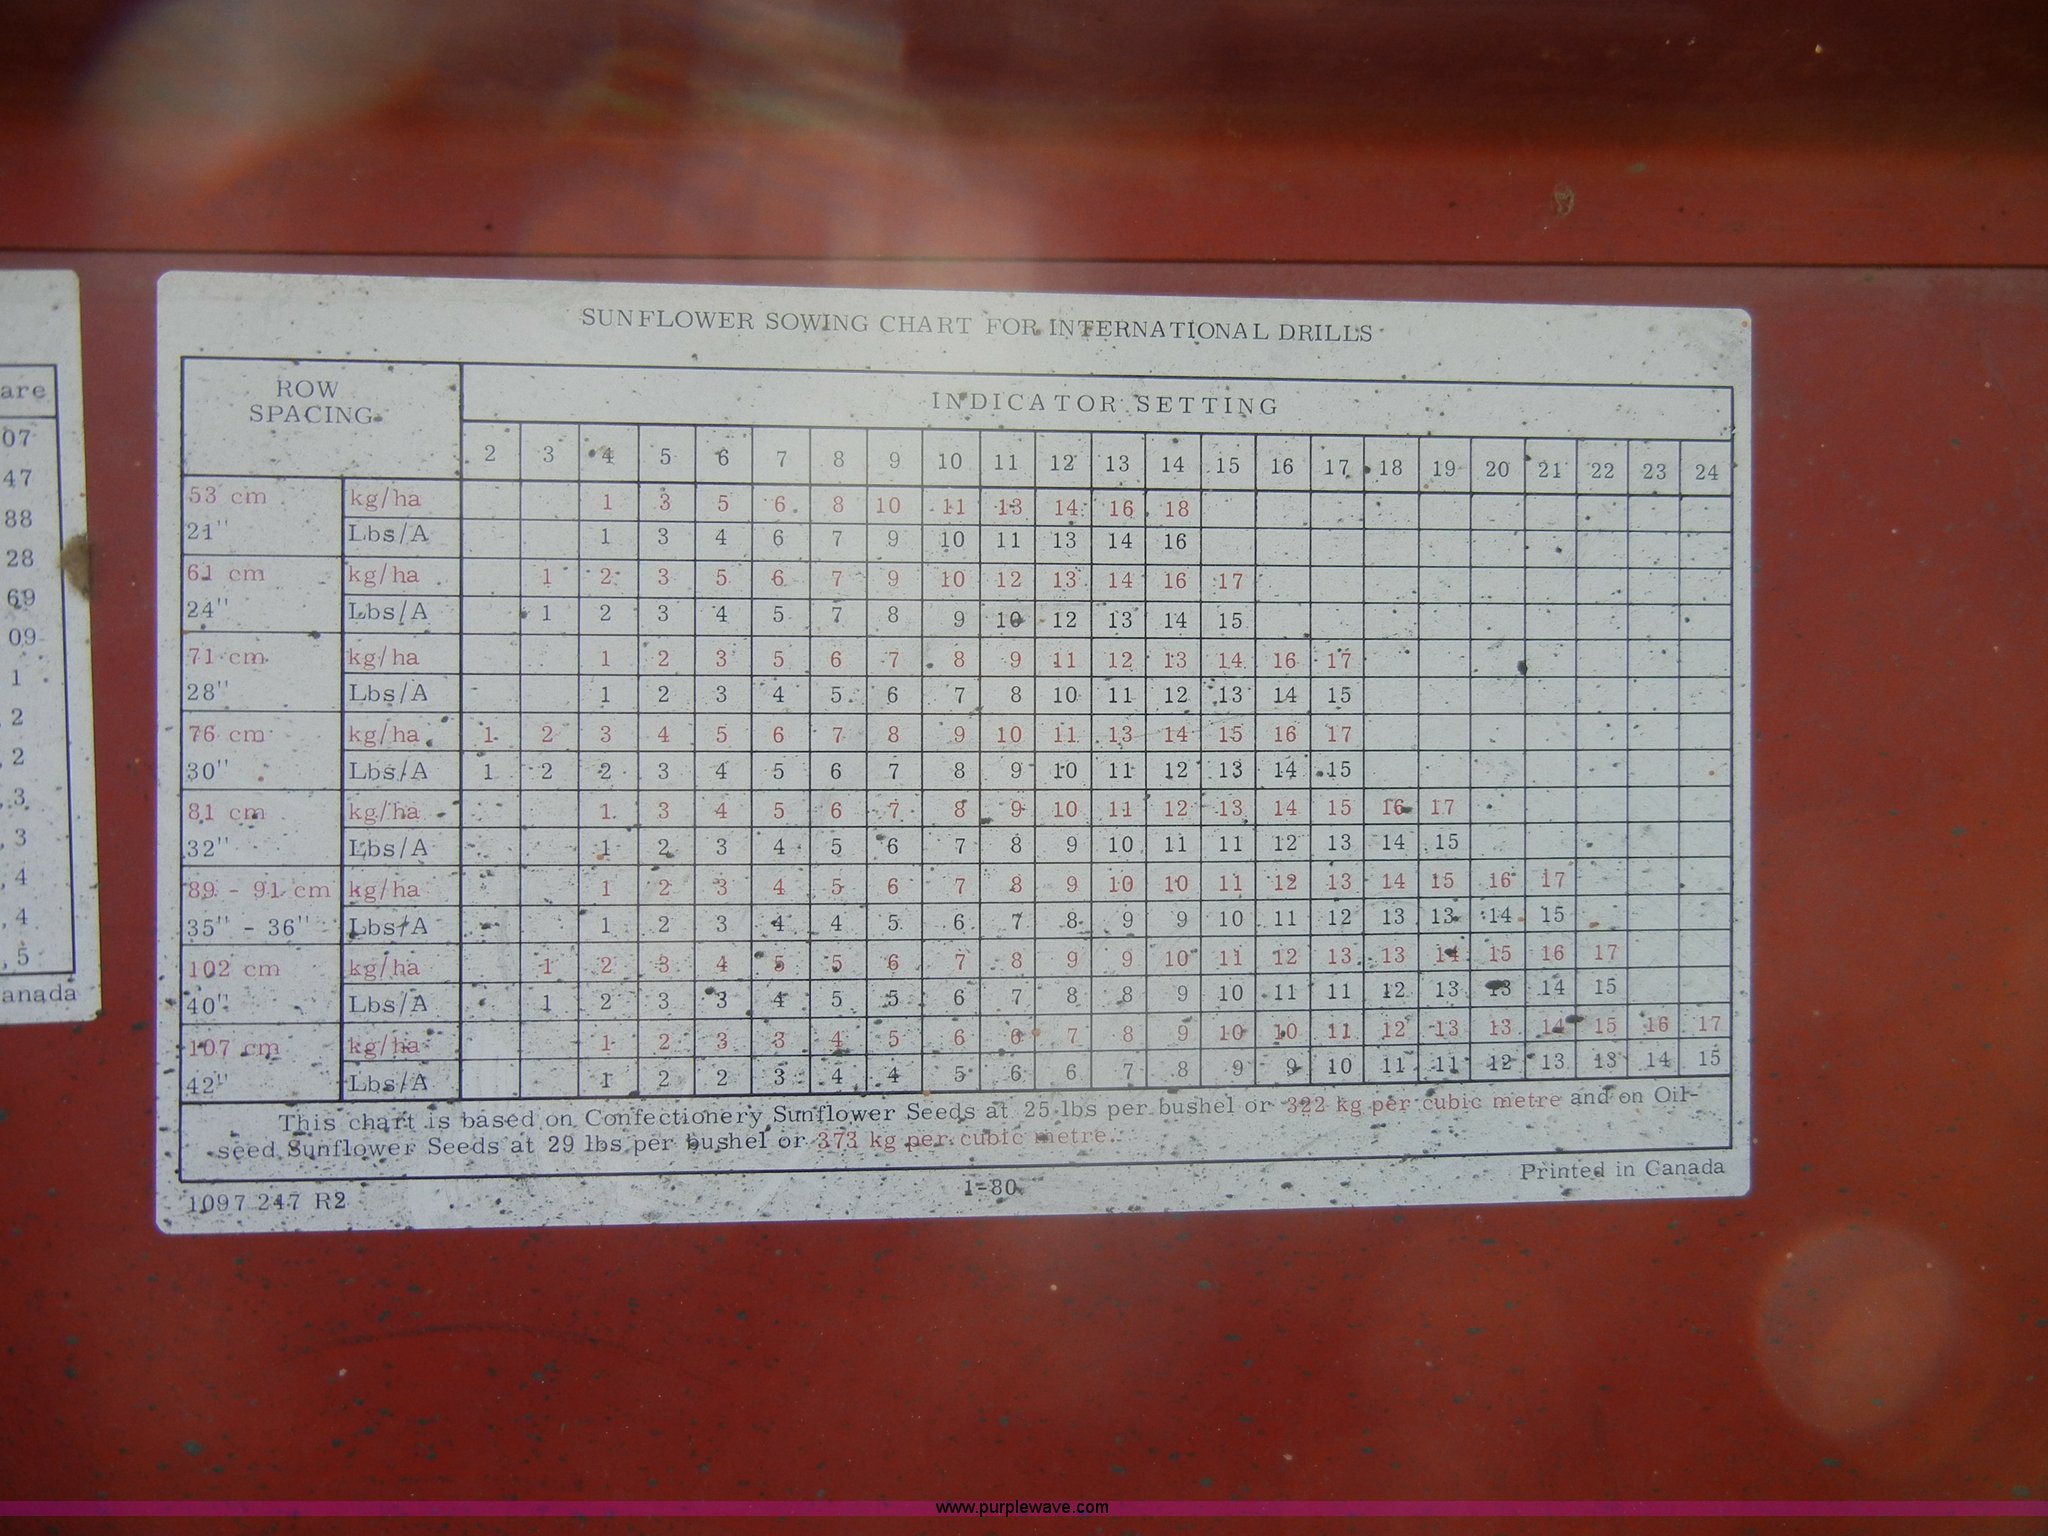 SUNFLOWER SOWING CHART FOR INTERNATIONAL DRILLS
ROW
SPACING
INDICATOR SETTING
2 3 4 5 6 7 8 9 10 11 12 13 14 15 16 17 18 19 20 21 22 23 24
53 cm kg/ha 1 3 5 6 8 10 11 13 14 16 18
21" Lbs/A 1 3 4 6 7 9 10 11 13 14 16
61 cm kg/ha 1 2 3 5 6 7 9 10 12 13 14 16 17
24" Lbs/A 1 2 3 4 5 7 8 9 10 12 13 14 15
71 cm kg/ha 1 2 3 5 6 7 8 9 11 12 13 14 16 17
28" Lbs/A 1 2 3 4 5 6 7 8 10 11 12 13 14 15
76 cm kg/ha 1 2 3 4 5 6 7 8 9 10 11 13 14 15 16 17
30" Lbs/A 1 2 2 3 4 5 6 7 8 9 10 11 12 13 14 15
81 cm kg/ha 1 3 4 5 6 7 8 9 10 11 12 13 14 15 16 17
32" Lbs/A 1 2 3 4 5 6 7 8 9 10 11 11 12 13 14 15
89 - 91 cm kg/ha 1 2 3 4 5 6 7 8 9 10 10 11 12 13 14 15 16 17
35" - 36" Lbs/A 1 2 3 4 4 5 6 7 8 9 9 10 11 12 13 13 14 15
102 cm kg/ha 1 2 3 4 5 5 6 7 8 9 9 10 11 12 13 13 14 15 16 17
40" Lbs/A 1 2 3 3 4 5 5 6 7 8 8 9 10 11 11 12 13 13 14 15
107 cm kg/ha 1 2 3 3 4 5 6 6 7 8 9 10 10 11 12 13 13 14 15 16 17
42" Lbs/A 1 2 2 3 4 4 5 6 6 7 8 9 9 10 11 11 12 13 13 14 15
This chart is based on Confectionery Sunflower Seeds at 25 lbs per bushel or 322 kg per cubic metre and on Oil-
seed Sunflower Seeds at 29 lbs per bushel or 373 kg per cubic metre.
1097 247 R2
1-80
Printed in Canada
are
07
47
88
28
69
09
1
2
2
3
3
4
4
5
anada
www.purplewave.com